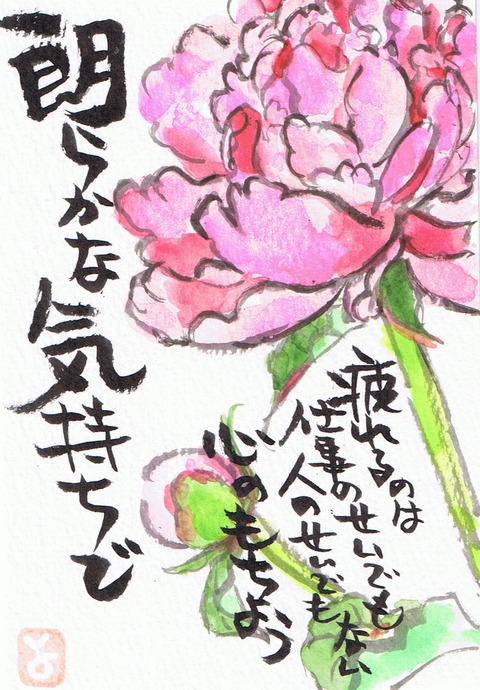 朗らかな気持ちで
疲れるのは
仕事のせいでも
人のせいでもない
心のもちよう